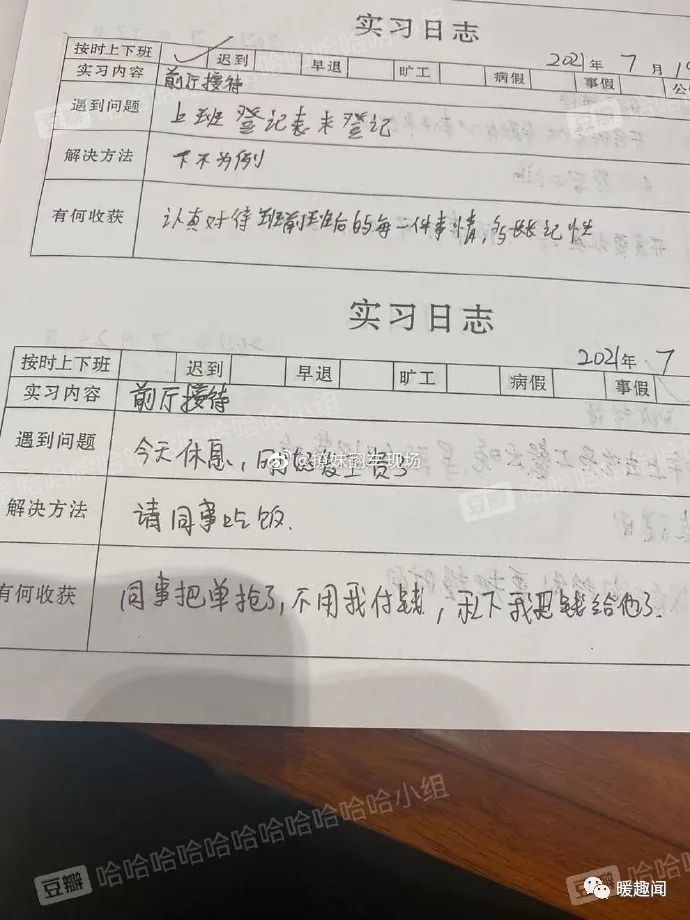 实习日志
2021年 7月 19
按时上下班 ✓ 迟到 早退 旷工 病假 事假 公
实习内容 前厅接待
遇到问题 上班登记表未登记
解决方法 下不为例
有何收获 认真对待班前班后的每一件事情,多长长记性
实习日志
2021年 7
按时上下班 迟到 早退 旷工 病假 事假
实习内容 前厅接待
遇到问题 今天休息,同时发工资了
@挣妹翻车现场
解决方法 请同事吃饭.
有何收获 同事把单抢了,不用我付钱,私下我把钱给他了.
豆瓣 哈哈哈哈哈哈哈哈哈哈小组
豆瓣
暖趣闻